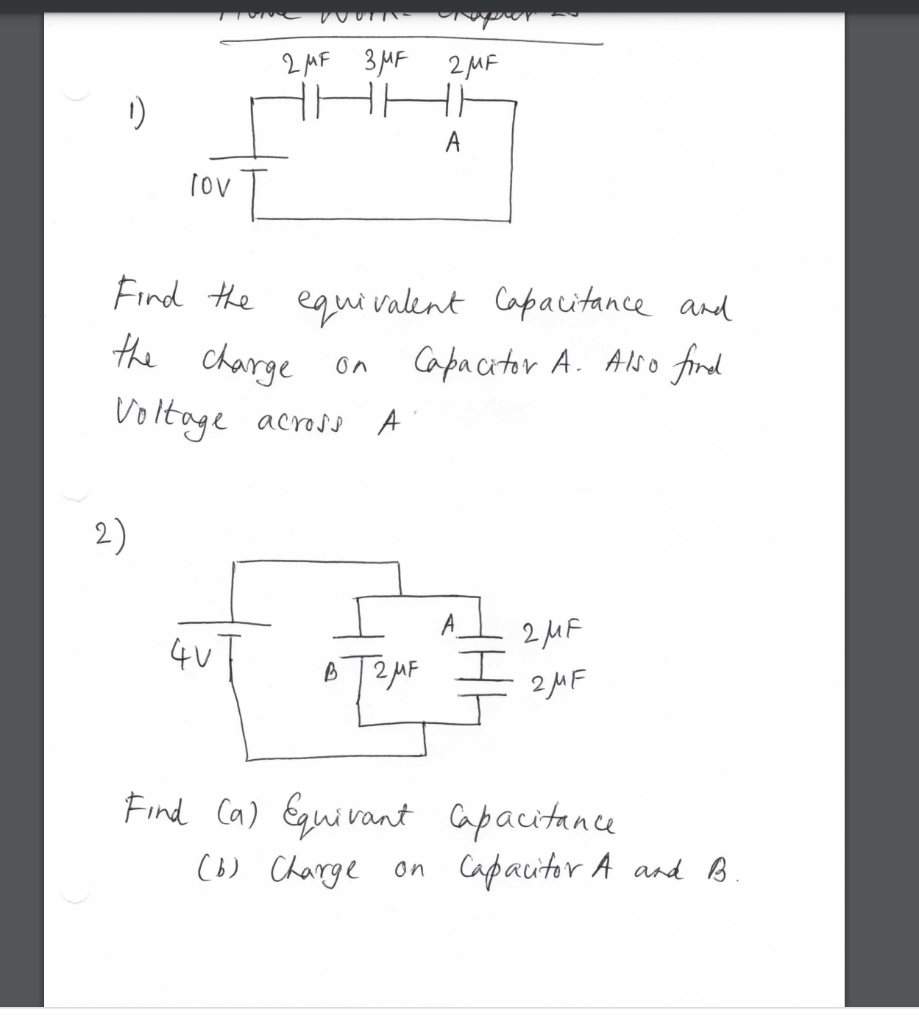 2 μF 3 μF 2 μF
1)
A
10V
Find the equivalent Capacitance and
the charge on Capacitor A. Also find
Voltage across A
2)
A 2 μF
4V
B 2 μF
2 μF
Find (a) Equivant Capacitance
(b) Charge on Capacitor A and B.